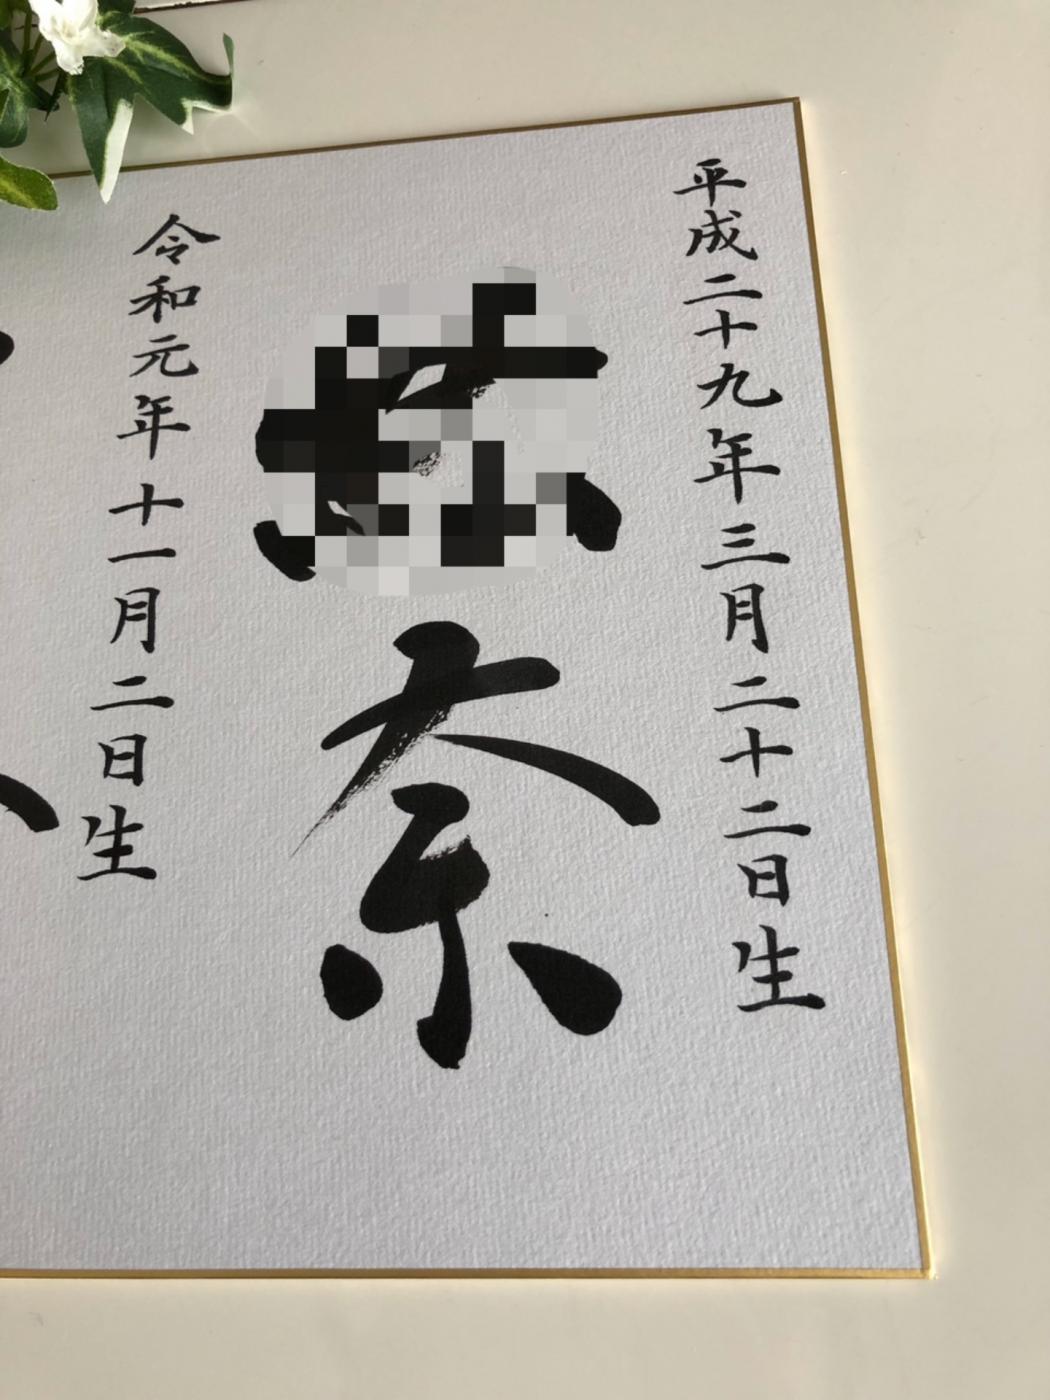 平成二十九年三月二十二日生
奈
令和元年十一月二日生